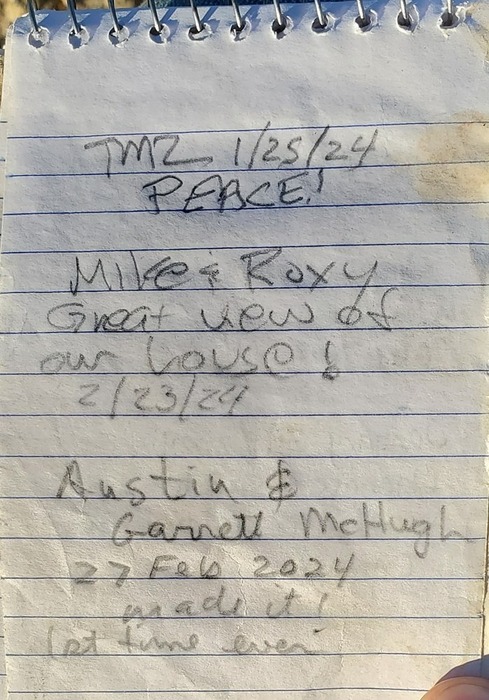 TMZ 1/25/24
PEACE!
Mike & Roxy
Great view of
our house!
2/23/24
Austin &
Garrett McHugh
27 Feb 2024
made it!
1st time ever